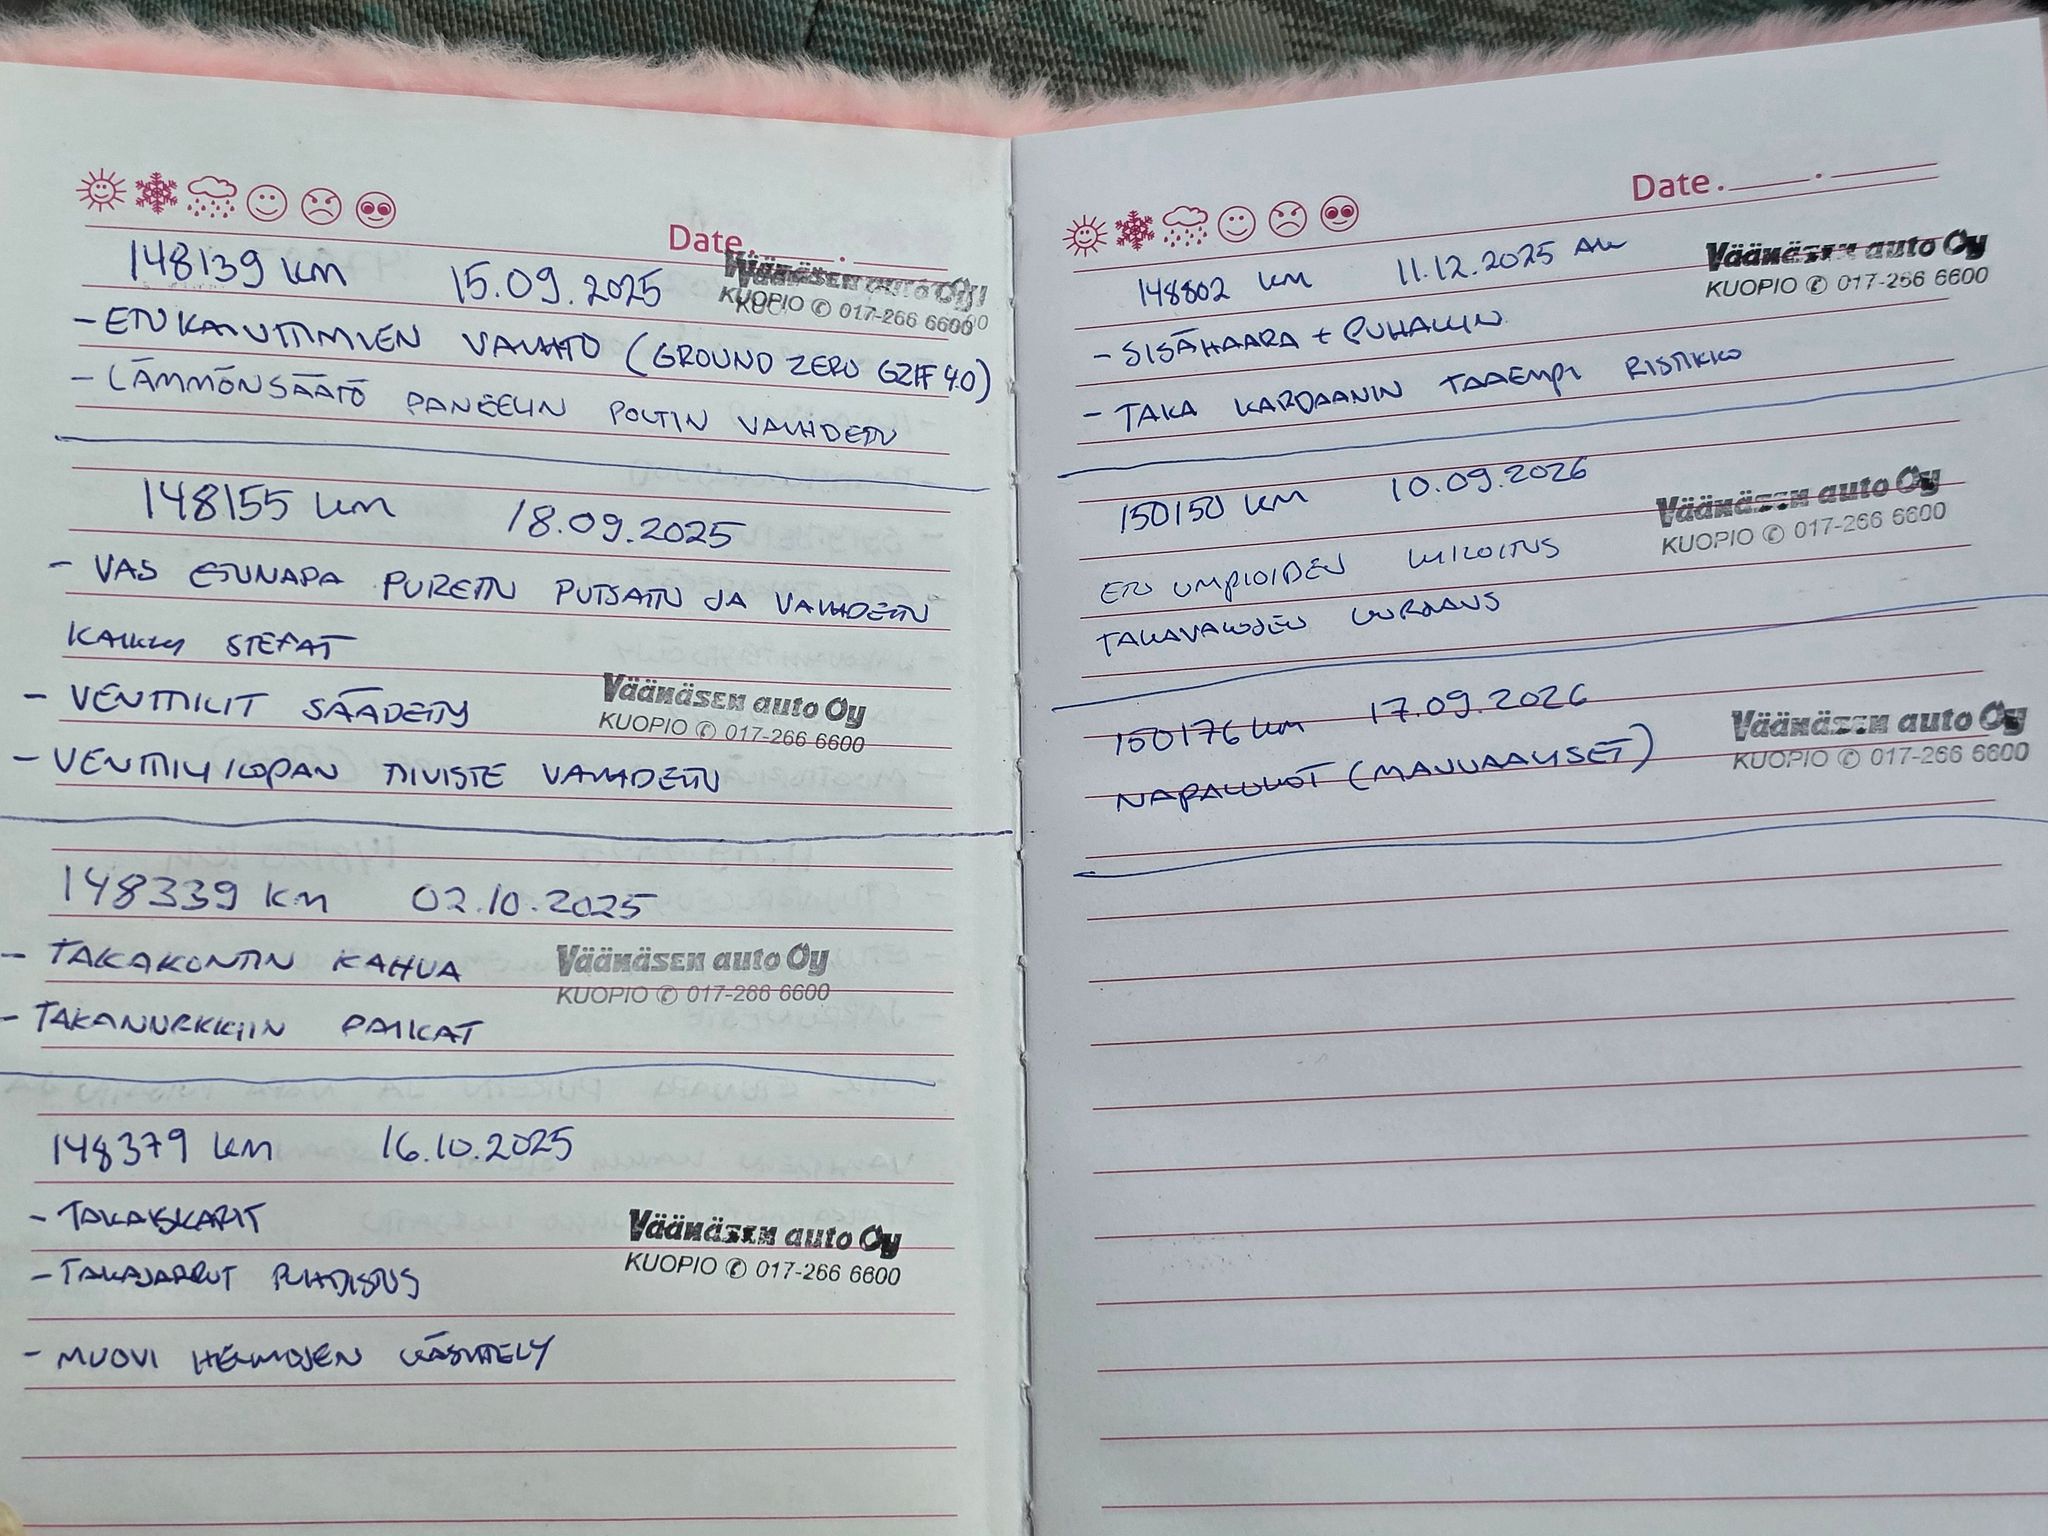 Date.
148139 km 15.09.2025
Väänäsen auto Oy
KUOPIO ✆ 017-266 6600
- ETUKAIUTTIMIEN VAIHTO (GROUND ZERO GZIF 4.0)
- LÄMMÖNSÄÄTÖ PANEELIN POLTIN VAIHDETTU
148155 km 18.09.2025
- VAS ETUNAPA PURETTU PUTSATTU JA VAIHDETTU
KAIKKI STEFAT
- VENTTIILIT SÄÄDETTY
Väänäsen auto Oy
KUOPIO ✆ 017-266 6600
- VENTTIILIKOPAN TIIVISTE VAIHDETTU
148339 km 02.10.2025
- TAKAKONTIN KAHVA
Väänäsen auto Oy
KUOPIO ✆ 017-266 6600
- TAKANURKKIIN PAIKAT
148379 km 16.10.2025
- TAKAISKARIT
Väänäsen auto Oy
KUOPIO ✆ 017-266 6600
- TAKAJARRUT PUHDISTUS
- MUOVI HELMOJEN KÄSITTELY
Date.
148802 km 11.12.2025
Väänäsen auto Oy
KUOPIO ✆ 017-266 6600
- SISÄHAARA + PUHALLIN
- TAKA KARDAANIN TAAEMPI RISTIKKO
150150 km 10.09.2026
Väänäsen auto Oy
KUOPIO ✆ 017-266 6600
ETU UMPIOIDEN KIILLOITUS
TAKAVALOJEN
150176 km 17.09.2026
Väänäsen auto Oy
KUOPIO ✆ 017-266 6600
NAPALUKOT (MANUAALISET)